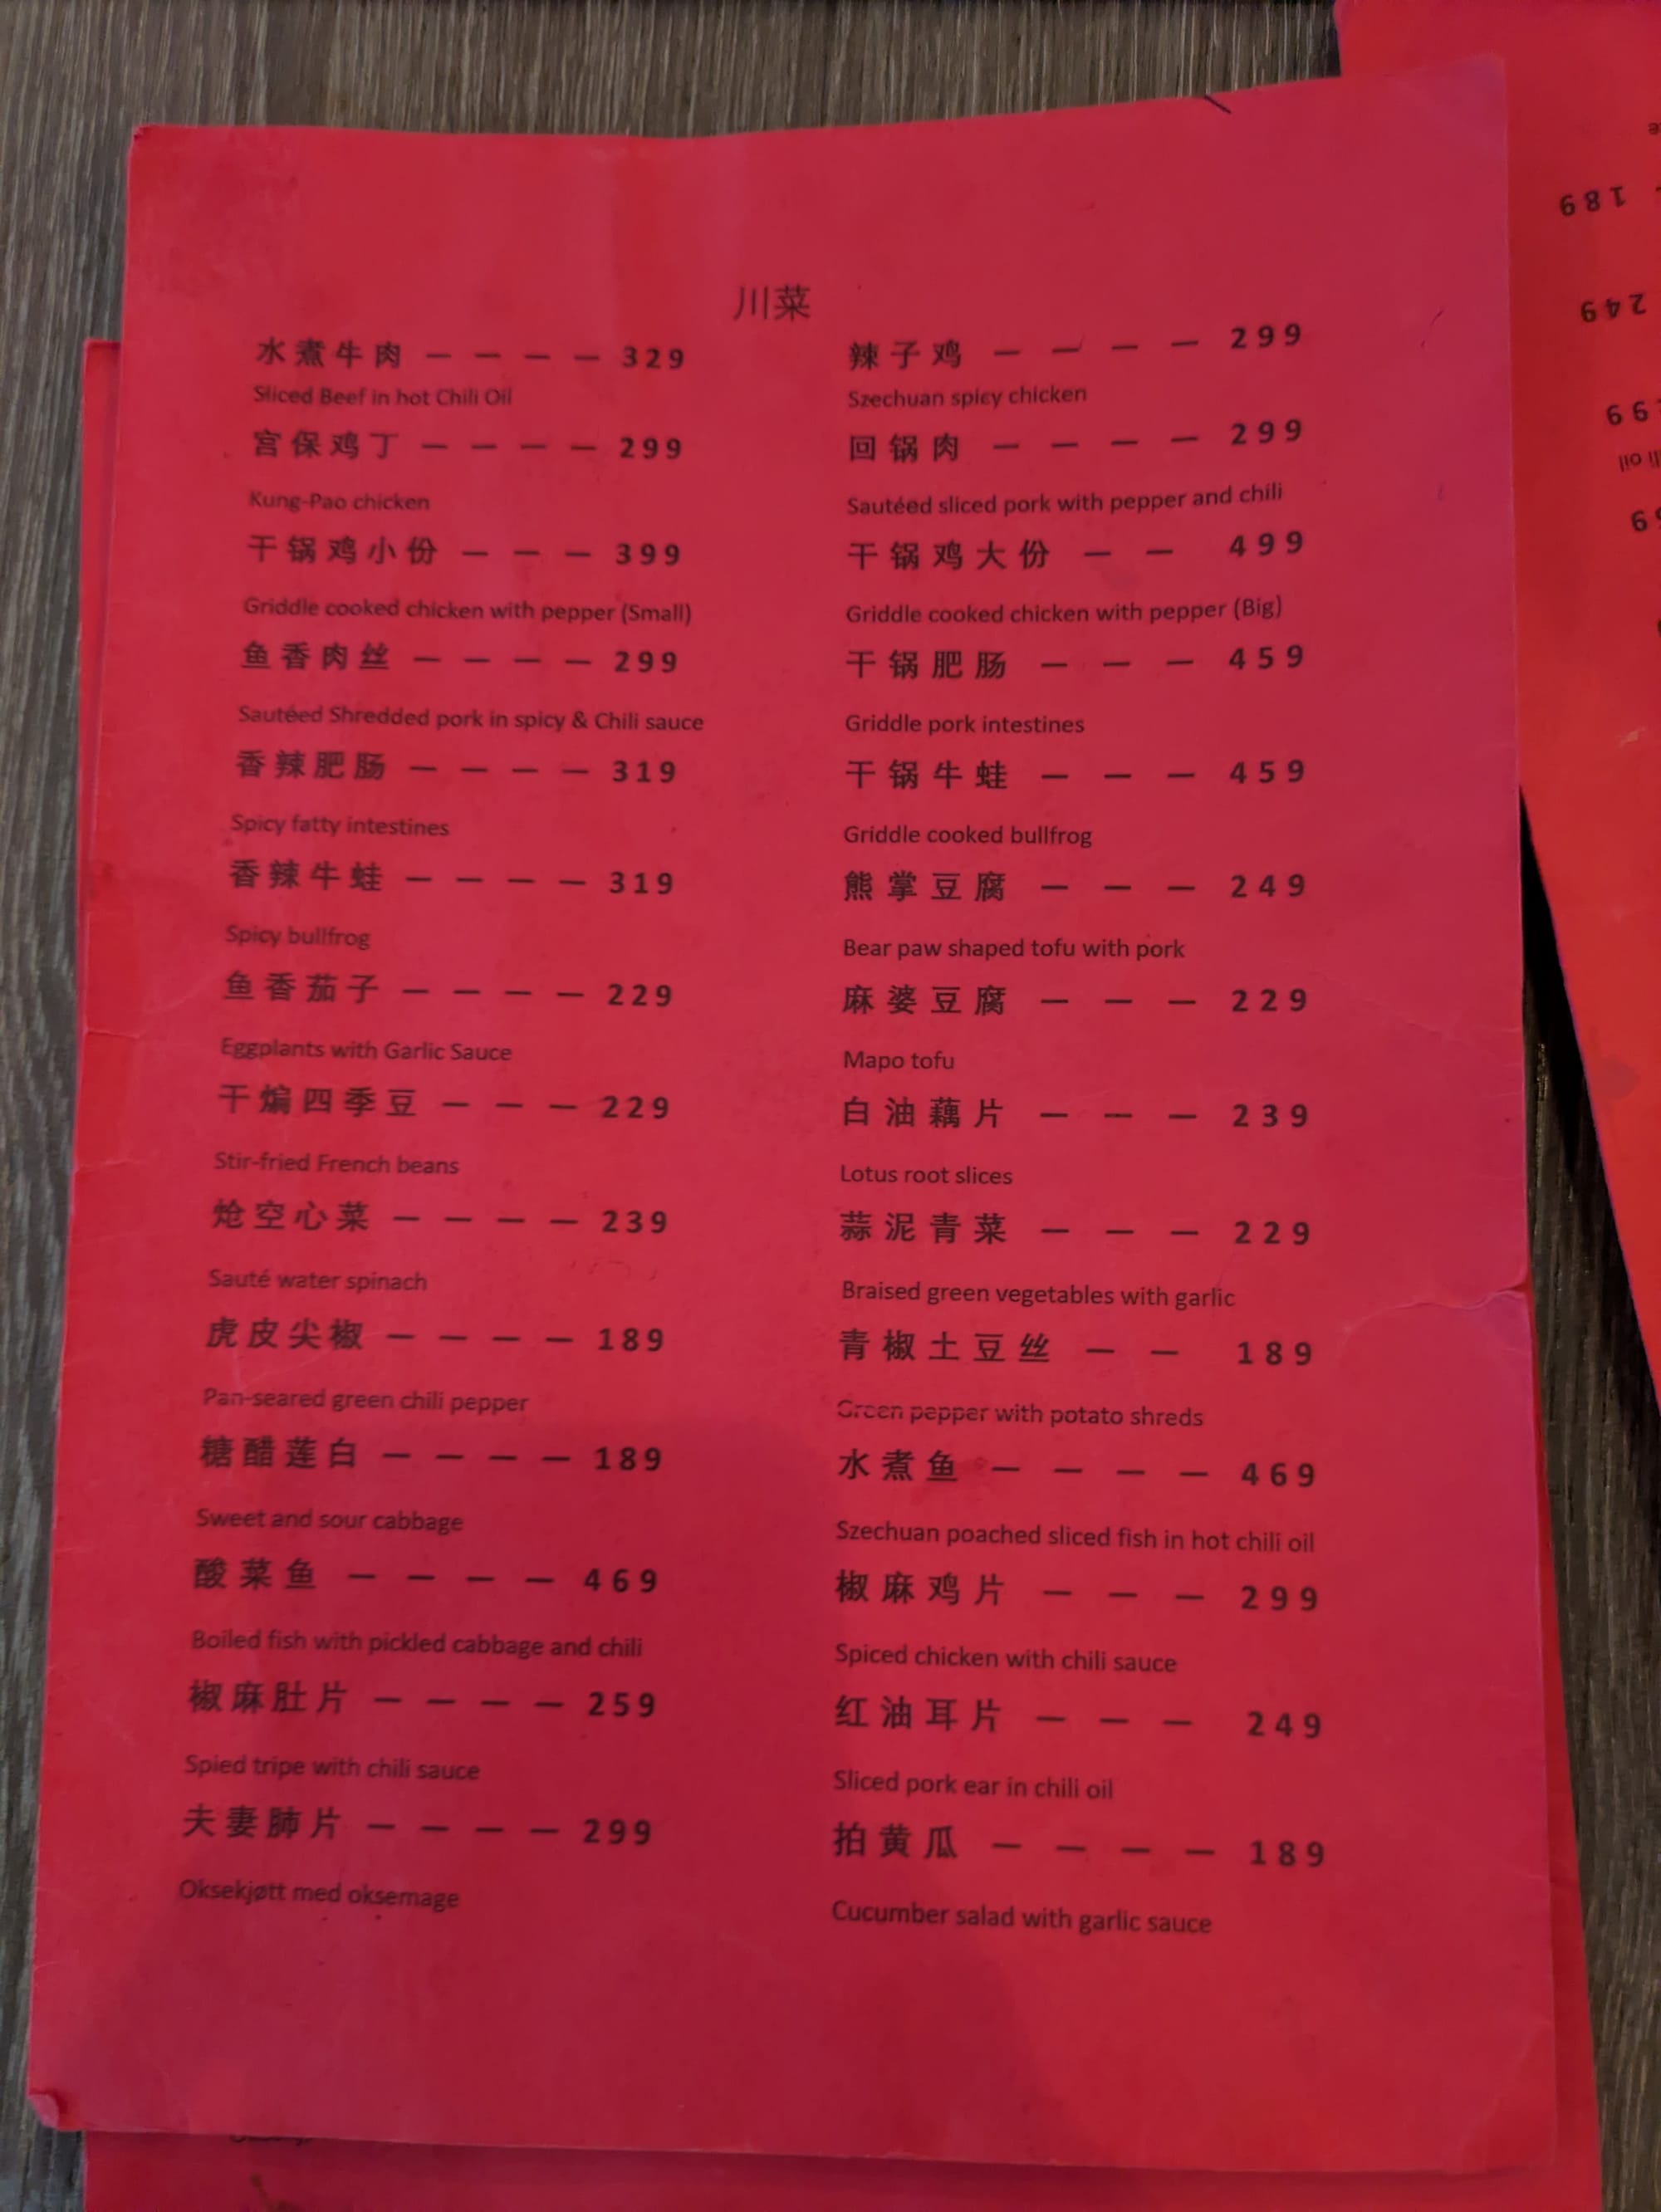 川菜
水煮牛肉 — — — — 329
Sliced Beef in hot Chili Oil
宫保鸡丁 — — — — 299
Kung-Pao chicken
干锅鸡小份 — — — 399
Griddle cooked chicken with pepper (Small)
鱼香肉丝 — — — — 299
Sautéed Shredded pork in spicy & Chili sauce
香辣肥肠 — — — — 319
Spicy fatty intestines
香辣牛蛙 — — — — 319
Spicy bullfrog
鱼香茄子 — — — — 229
Eggplants with Garlic Sauce
干煸四季豆 — — — 229
Stir-fried French beans
炝空心菜 — — — — 239
Sauté water spinach
虎皮尖椒 — — — — 189
Pan-seared green chili pepper
糖醋莲白 — — — — 189
Sweet and sour cabbage
酸菜鱼 — — — — 469
Boiled fish with pickled cabbage and chili
椒麻肚片 — — — — 259
Spied tripe with chili sauce
夫妻肺片 — — — — 299
Oksekjøtt med oksemage
辣子鸡 — — — — 299
Szechuan spicy chicken
回锅肉 — — — — 299
Sautéed sliced pork with pepper and chili
干锅鸡大份 — — 499
Griddle cooked chicken with pepper (Big)
干锅肥肠 — — — 459
Griddle pork intestines
干锅牛蛙 — — — 459
Griddle cooked bullfrog
熊掌豆腐 — — — 249
Bear paw shaped tofu with pork
麻婆豆腐 — — — 229
Mapo tofu
白油藕片 — — — 239
Lotus root slices
蒜泥青菜 — — — 229
Braised green vegetables with garlic
青椒土豆丝 — — 189
Green pepper with potato shreds
水煮鱼 — — — — 469
Szechuan poached sliced fish in hot chili oil
椒麻鸡片 — — — 299
Spiced chicken with chili sauce
红油耳片 — — — 249
Sliced pork ear in chili oil
拍黄瓜 — — — — 189
Cucumber salad with garlic sauce
189
249
99
oil